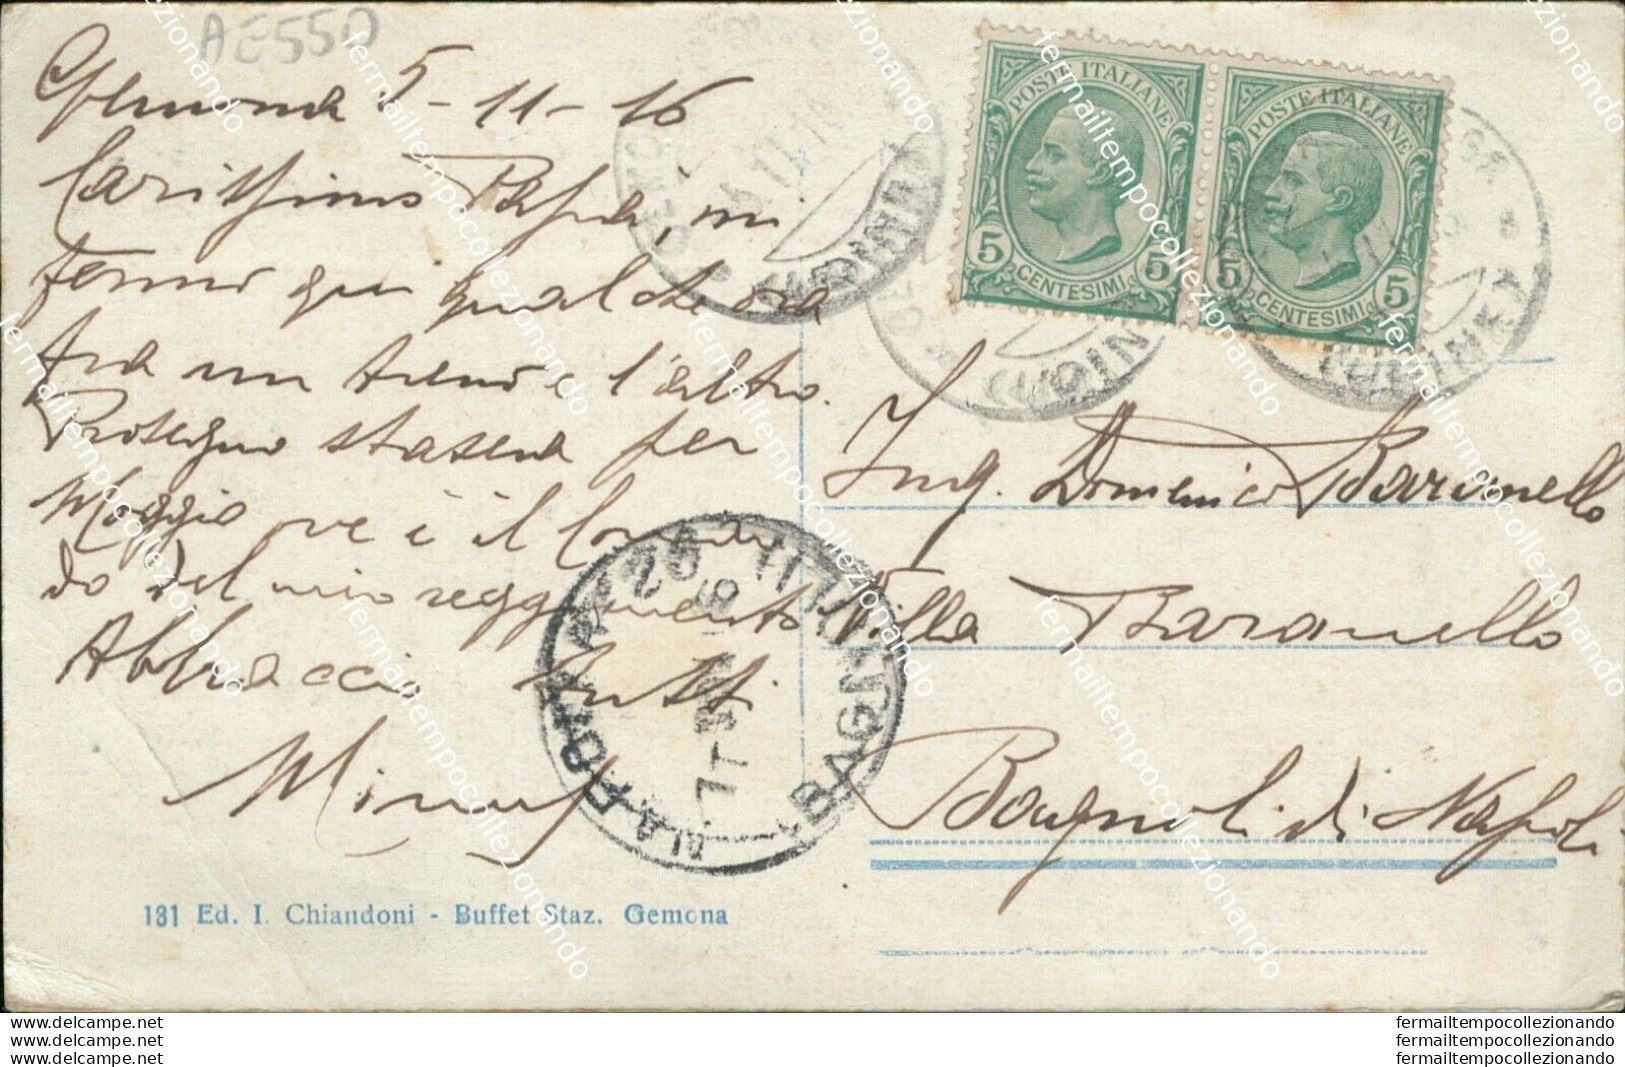 AE550
Gemona 5-11-16
Carissimo Papà, mi
fermo qui qualche ora
tra un treno e l'altro.
Proseguo stasera per
Moggio ove è il Coman
do del mio reggimento
Abbraccio tutti
POSTE ITALIANE
5 CENTESIMI 5
POSTE ITALIANE
5 CENTESIMI 5
(UDINE)
(UDINE)
(UDINE)
Ing. Domenico Baranello
Villa Baranello
Bagnoli di Napoli
131 Ed. I. Chiandoni - Buffet Staz. Gemona
www.delcampe.net
www.delcampe.net
www.delcampe.net
fermailtempocollezionando
fermailtempocollezionando
fermailtempocollezionando